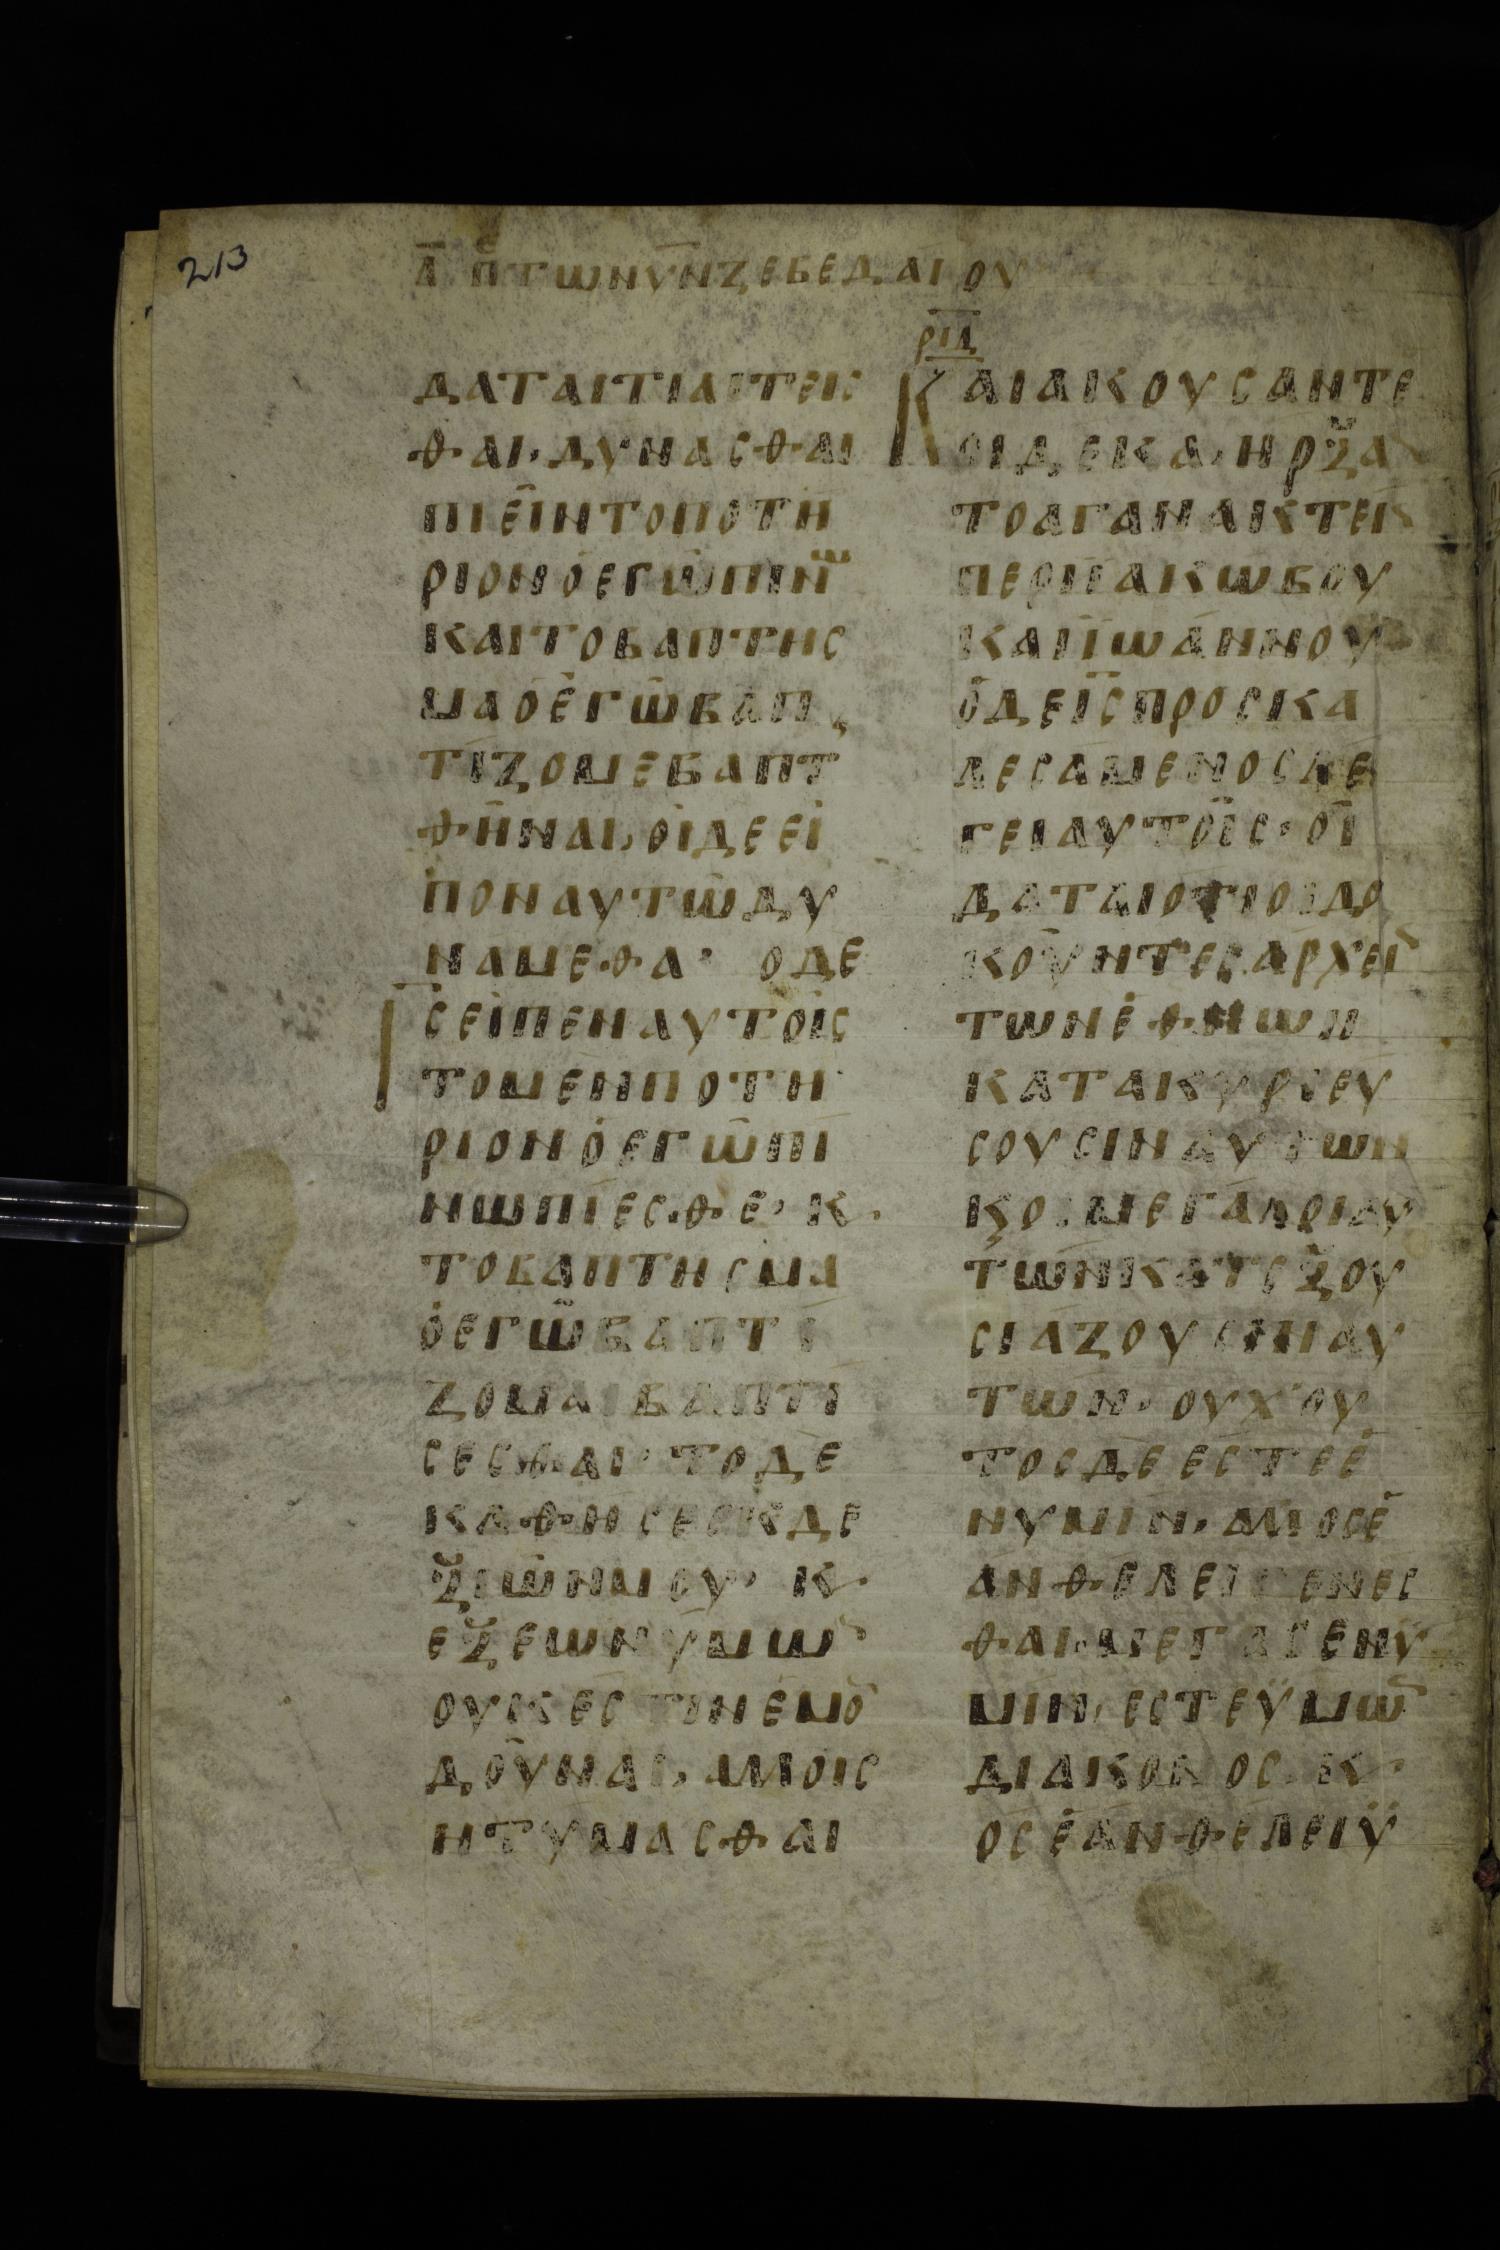 213
Λ̅ Π̅ ΤΩΝΥΝΖΕΒΕΔΑΙΟΥ
ΔΑΤΑΙΤΙΑΙΤΕΙϹ
ΘΑΙ· ΔΥΝΑϹΘΑΙ
ΠΙΕΙΝΤΟΠΟΤΗ
ΡΙΟΝΟΕΓΩΠΙΝΩ
ΚΑΙΤΟΒΑΠΤΗϹ
ΜΑΟΕΓΩΒΑΠ
ΤΙΖΟΜΕΒΑΠΤ
ΘΗΝΑΙ, ΟΙΔΕΕΙ
ΠΟΝΑΥΤΩΔΥ
ΝΑΜΕΘΑ· ΟΔΕ
Ι̅ϹΕΙΠΕΝΑΥΤΟΙϹ
ΤΟΜΕΝΠΟΤΗ
ΡΙΟΝΟΕΓΩΠΙ
ΝΩΠΙΕϹΘΕ, Κ,
ΤΟΒΑΠΤΗϹΜΑ
ΟΕΓΩΒΑΠΤΙ
ΖΟΜΑΙΒΑΠΤΙ
ϹΕϹΘΑΙ· ΤΟΔΕ
ΚΑΘΗϹΕΕΚΔΕ
ΞΙΩΝΜΟΥ, Κ,
ΕΞΕΩΝΥΜΩ
ΟΥΚΕϹΤΙΝΕΜΟ
ΔΟΥΝΑΙ, ΑΛΛΟΙϹ
ΗΤΥΜΑϹΘΑΙ
ΡΙΔ
ΚΑΙΑΚΟΥϹΑΝΤΕ
ΟΙΔΕΚΑ, ΗΡΞΑ
ΤΟΑΓΑΝΑΚΤΕΙ
ΠΕΡΙΪΑΚΩΒΟΥ
ΚΑΙΪΩΑΝΝΟΥ
ΟΔΕΙ̅ϹΠΡΟϹΚΑ
ΛΕϹΑΜΕΝΟϹΛΕ
ΓΕΙΑΥΤΟΙϹ· ΟΙ
ΔΑΤΑΙΟΤΙΟΙΔΟ
ΚΟΥΝΤΕϹΑΡΧΕΙ
ΤΩΝΕΘΝΩΝ
ΚΑΤΑΚΥΡΙΕΥ
ϹΟΥϹΙΝΑΥΤΩΝ
ΚΟΙΜΕΓΑΛΟΙΑΥ
ΤΩΝΚΑΤΕΞΟΥ
ϹΙΑΖΟΥϹΙΝΑΥ
ΤΩΝ· ΟΥΧ'ΟΥ
ΤΟϹΔΕΕϹΤΕΕ
ΝΥΜΙΝ, ΑΛΛΟϹΕ
ΑΝΘΕΛΕΙΓΕΝΕϹ
ΘΑΙ, ΜΕΓΑϹΕΝΥ
ΜΙΝ, ΕϹΤΕΫΜΩ
ΔΙΑΚΟΝΟϹ, Κ,
ΟϹΕΑΝΘΕΛΕΙΫ